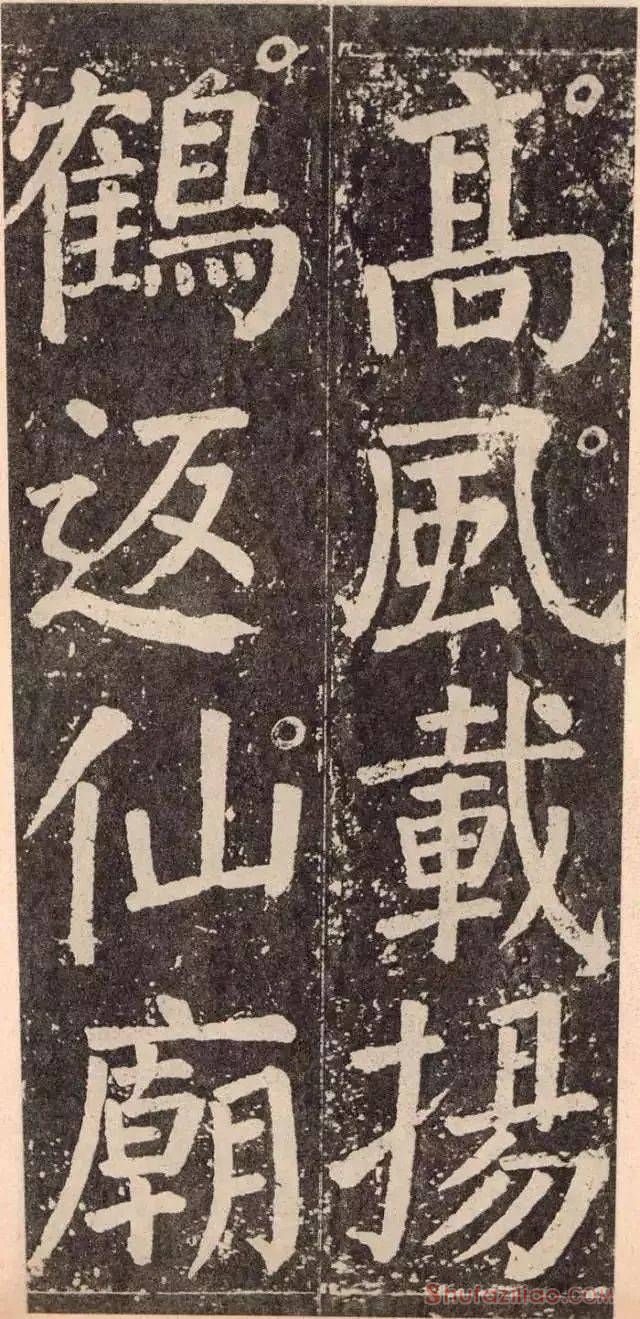 髙風載揚
鶴返仙廟
Shufaziliao.com